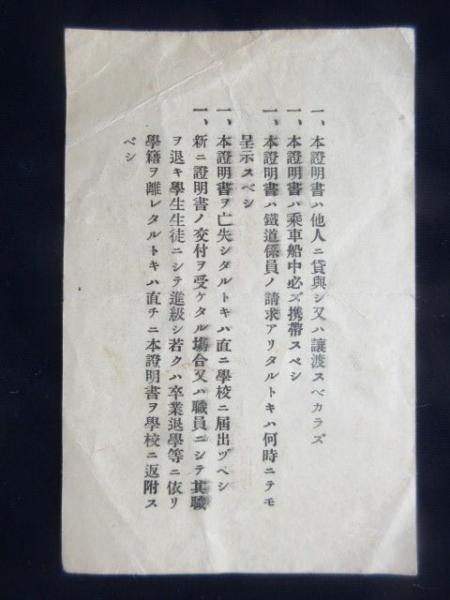 一、本證明書ハ他人ニ貸與シ又ハ讓渡スベカラズ
一、本證明書ハ乘車船中必ズ携帶スベシ
一、本證明書ハ鐵道係員ノ請求アリタルトキハ何時ニテモ
呈示スベシ
一、本證明書ヲ亡失シタルトキハ直ニ學校ニ届出ヅベシ
一、新ニ證明書ノ交付ヲ受ケタル塲合又ハ職員ニシテ其職
ヲ退キ學生生徒ニシテ進級シ若クハ卒業退學等ニ依リ
學籍ヲ離レタルトキハ直チニ本證明書ヲ學校ニ返附ス
ベシ